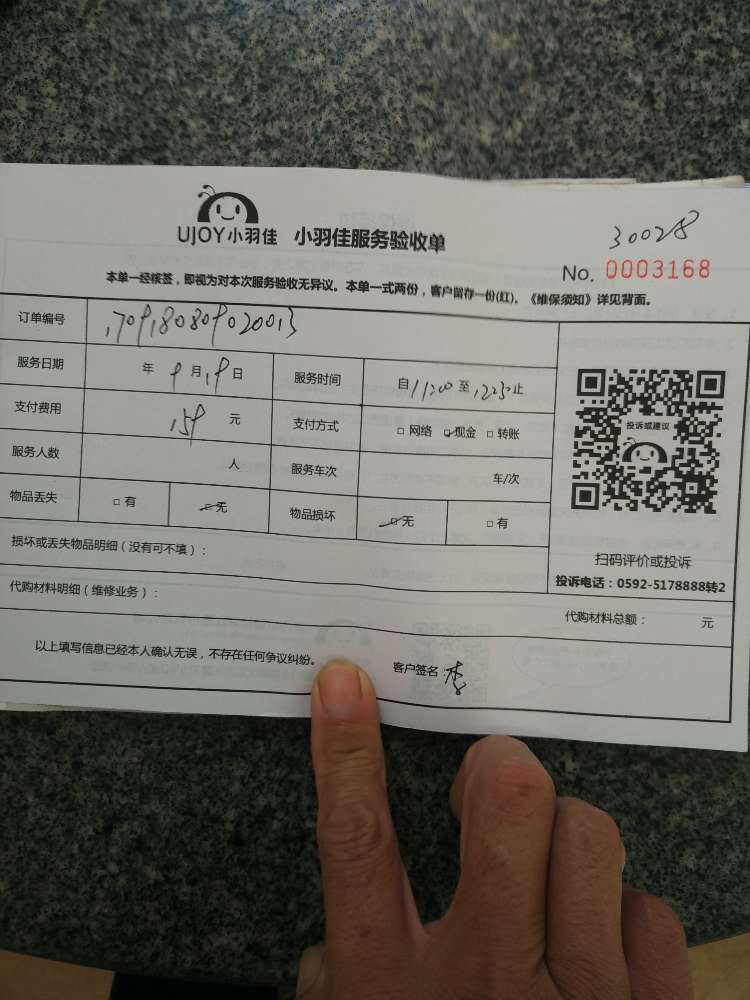 UJOY小羽佳 小羽佳服务验收单
30028
No. 0003168
本单一经核签，即视为对本次服务验收无异议。本单一式两份，客户留存一份(红)。《维保须知》详见背面。
订单编号 1709180809020013
服务日期 年 9月19日 服务时间 自11:00至12:30止
支付费用 159 元 支付方式 □ 网络 ☑ 现金 □ 转账
服务人数 人 服务车次 车/次
物品丢失 □ 有 ☑ 无 物品损坏 ☑ 无 □ 有
投诉或建议
扫码评价或投诉
投诉电话：0592-5178888转2
损坏或丢失物品明细（没有可不填）：
代购材料明细（维修业务）： 代购材料总额： 元
以上填写信息已经本人确认无误，不存在任何争议纠纷。 客户签名：李